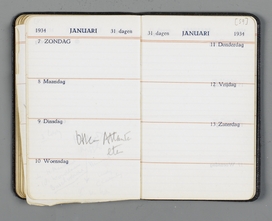 1934 JANUARI 31 dagen
7 ZONDAG
8 Maandag
9 Dinsdag
10 Woensdag
31 dagen JANUARI 1934
11 Donderdag
12 Vrijdag
13 Zaterdag